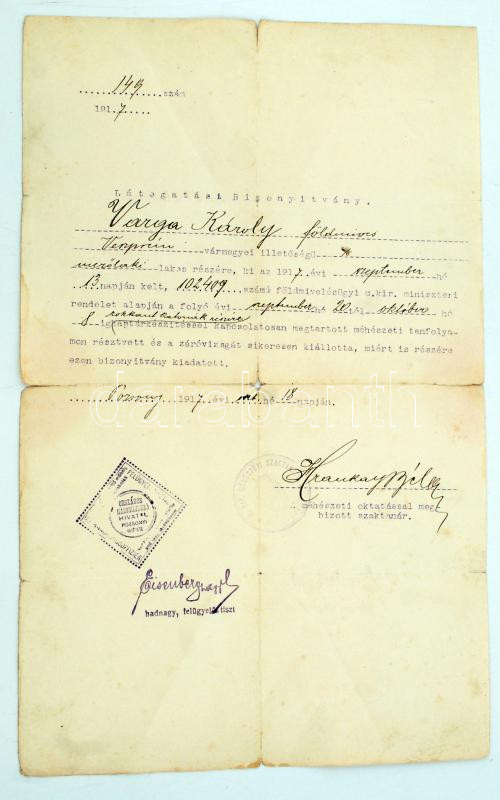 149 szám
1917
Látogatási Bizonyitvány.
Varga Károly földmives
Veszprém vármegyei illetőségü
merőlaki lakos részére, ki az 1917 évi szeptember hó
13 napján kelt, 102.409 számu földmivelésügyi m.kir. miniszteri
rendelet alapján a folyó évi szeptember hó 20 tól október hó
rokkant katonák részére
8 ig kaptárkészitéssel kapcsolatosan megtartott méhészeti tanfolya-
mon résztvett és a záróvizsgát sikeresen kiállotta, miért is részére
ezen bizonyitvány kiadatott.
Pozsony 1917 évi okt. hó 18 napján.
darabanth
ORSZÁGOS
HADIGONDOZÓ
HIVATAL
POZSONYI
Béla
A méhészeti oktatással meg-
bizott szaktanár.
Eisenberg
hadnagy, felügyelő tiszt